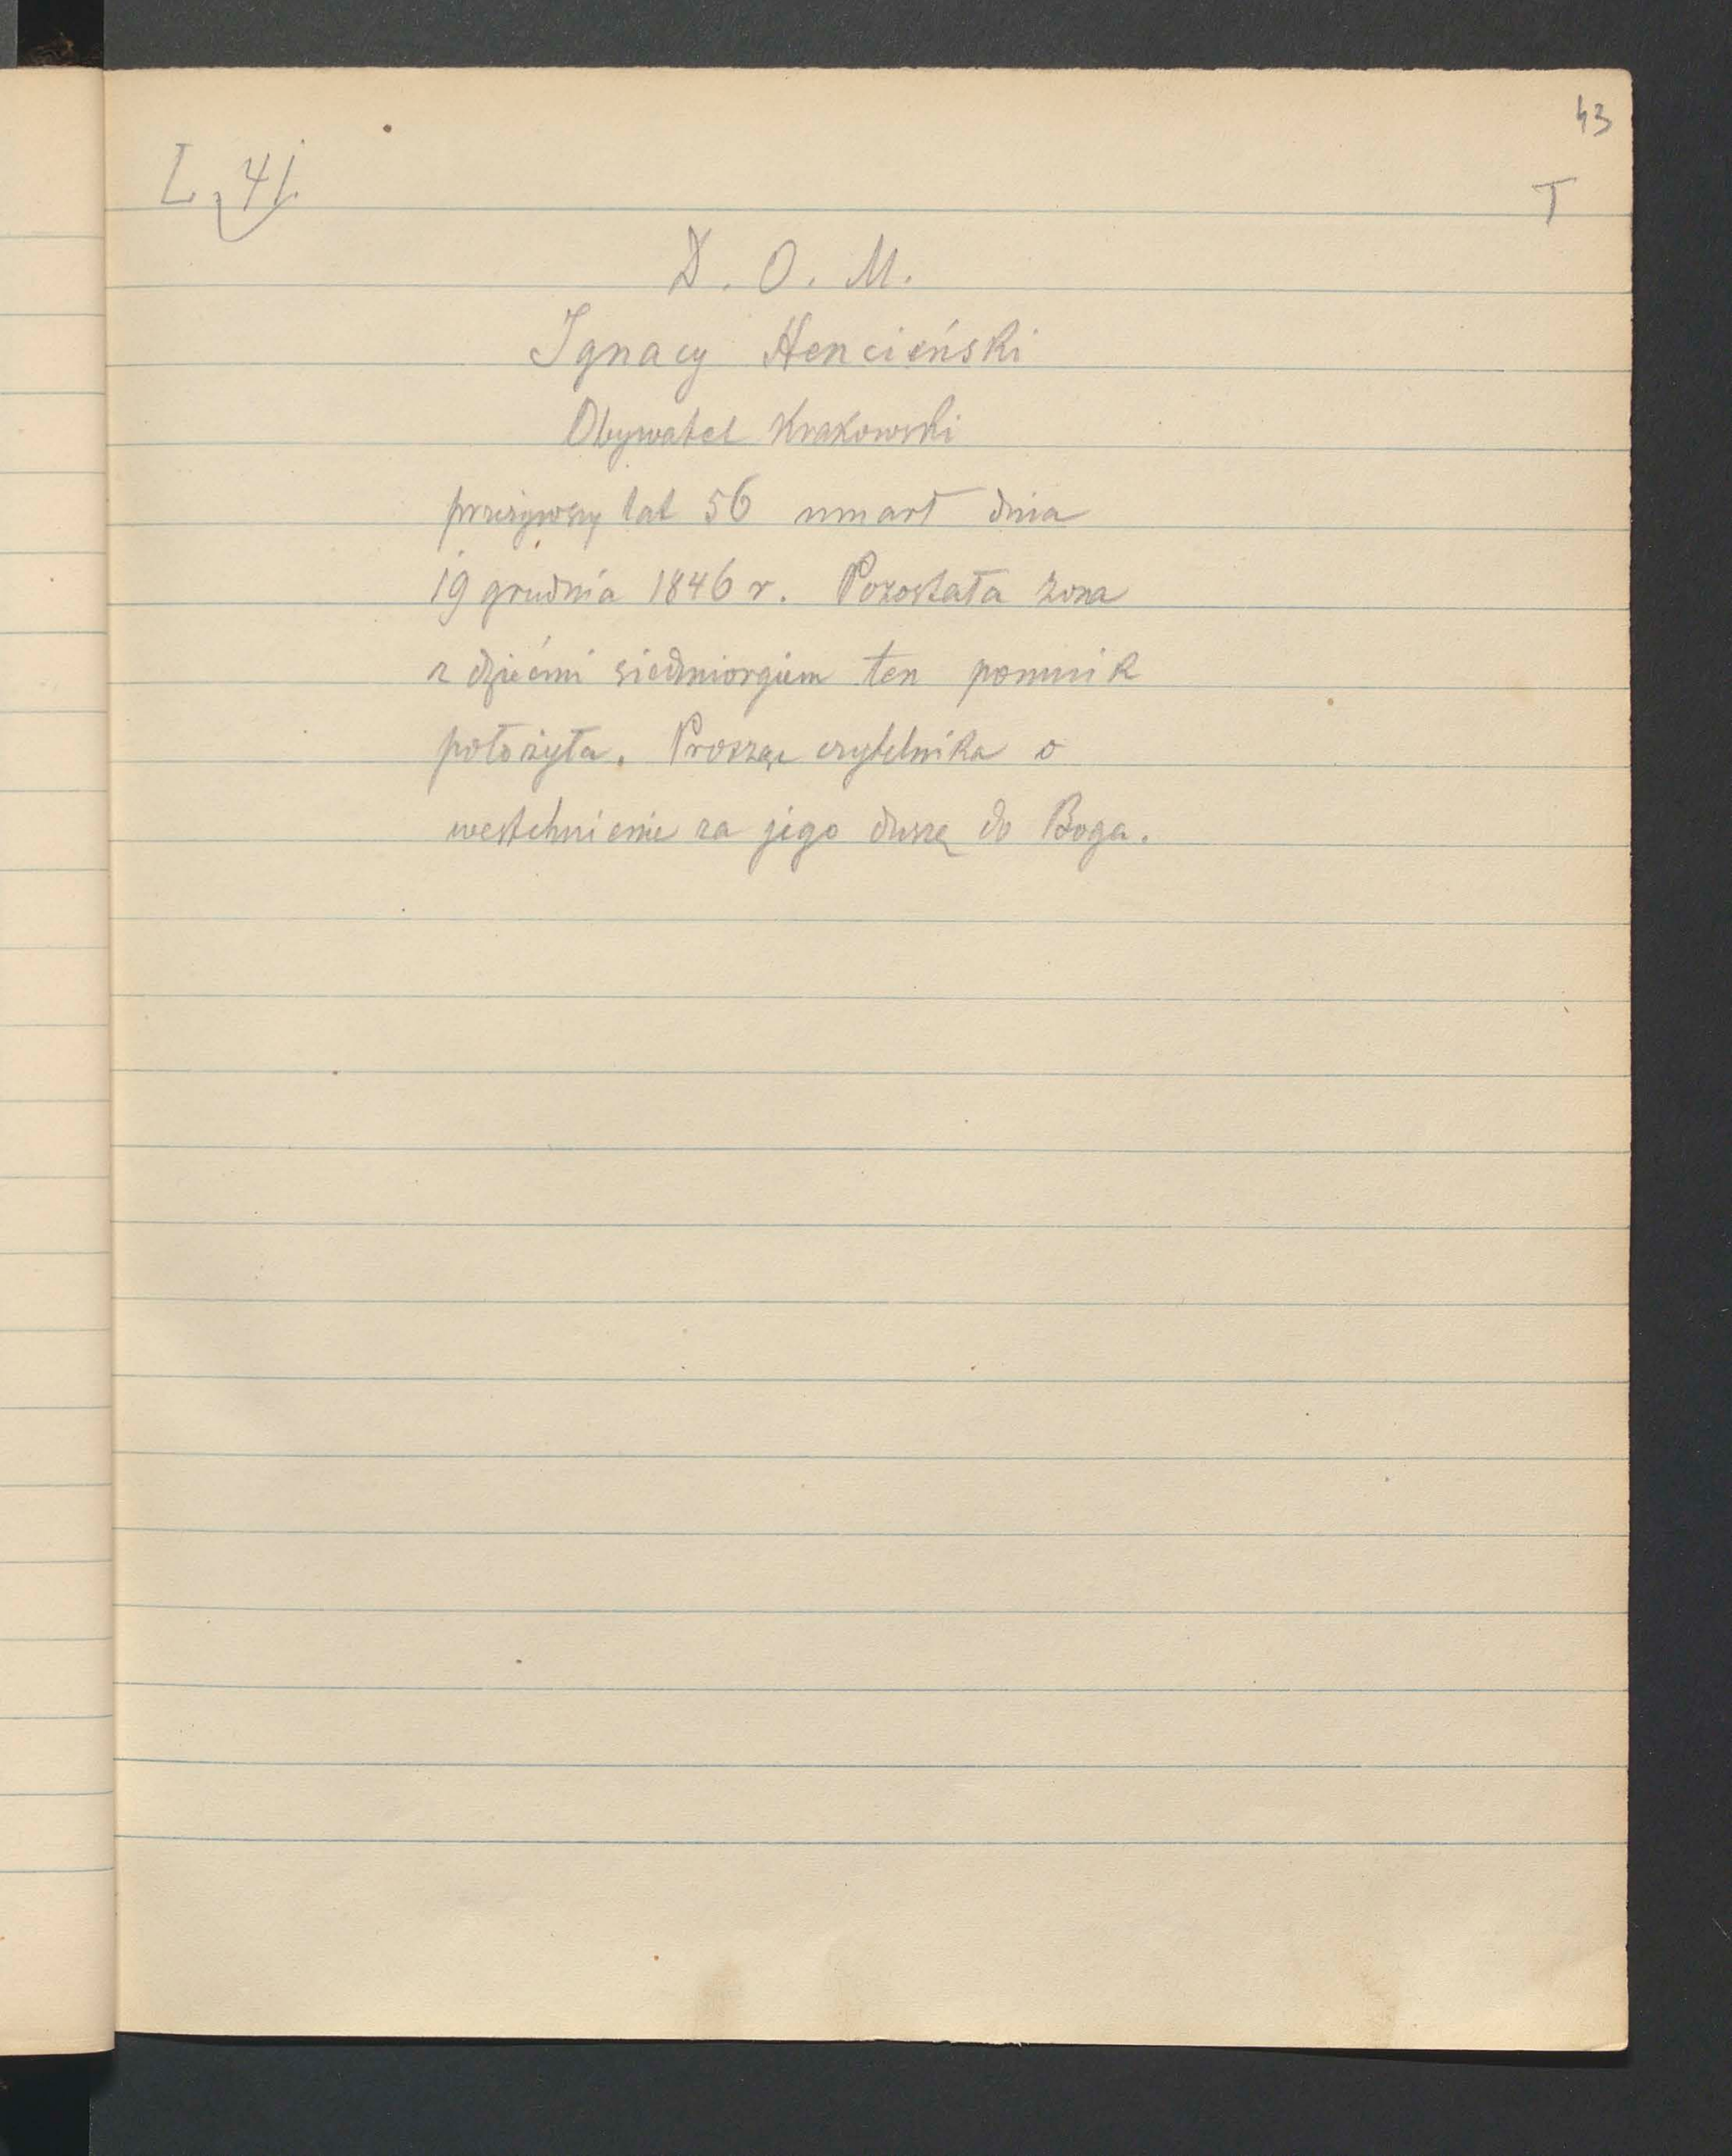 43
L. 41.
T
D. O. M.
Ignacy Hencieński
Obywatel Krakowski
przeżywszy lat 56 umarł dnia
19 grudnia 1846 r. Pozostała żona
z dziećmi siedmiorgiem ten pomnik
położyła. Prosząc czytelnika o
westchnienie za jego duszę do Boga.